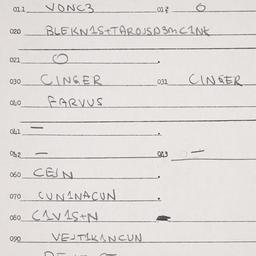 011 VONC3 012 O
020 BLEKN1S+TAROJSD3MC1NK
021 O
030 CINGER 031 CINGER
040 FARVUS
041 —
042 — 043 —
060 CEJN
070 CUN1NACUN
080 C1V1S+N
090 VEJT1K1NCUN